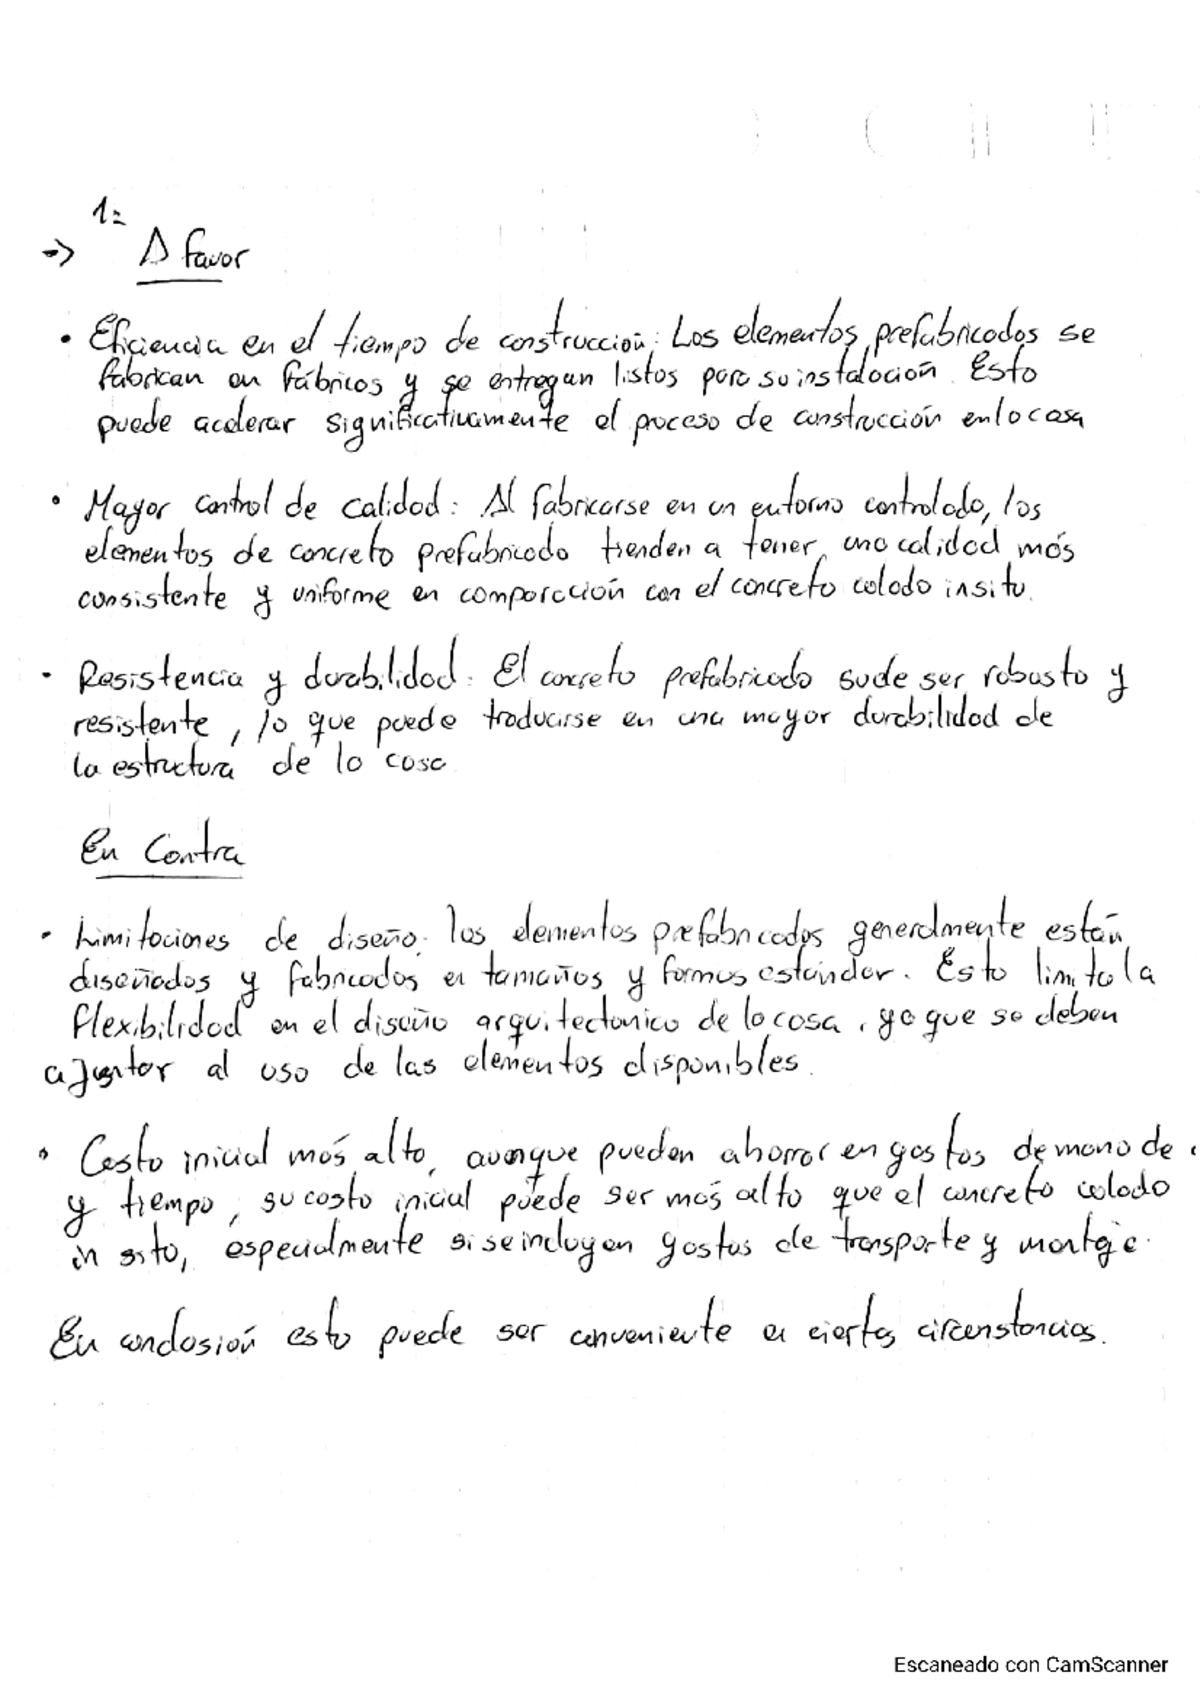 1=
→ A favor
• Eficiencia en el tiempo de construcción: Los elementos prefabricados se
fabrican en fábricas y se entregan listos para su instalación. Esto
puede acelerar significativamente el proceso de construcción en la casa
• Mayor control de calidad: Al fabricarse en un entorno controlado, los
elementos de concreto prefabricado tienden a tener una calidad más
consistente y uniforme en comparación con el concreto colado in situ.
• Resistencia y durabilidad: El concreto prefabricado suele ser robusto y
resistente, lo que puede traducirse en una mayor durabilidad de
la estructura de la casa
En Contra
• Limitaciones de diseño: los elementos prefabricados generalmente están
diseñados y fabricados en tamaños y formas estándar. Esto limita la
flexibilidad en el diseño arquitectonico de la casa, ya que se deben
ajustar al uso de las elementos disponibles.
• Costo inicial más alto, aunque pueden ahorrar en gastos de mano de
y tiempo, su costo inicial puede ser más alto que el concreto colado
in situ, especialmente si se incluyen gastos de transporte y montaje.
En conclusión esto puede ser conveniente en ciertas circunstancias.
Escaneado con CamScanner